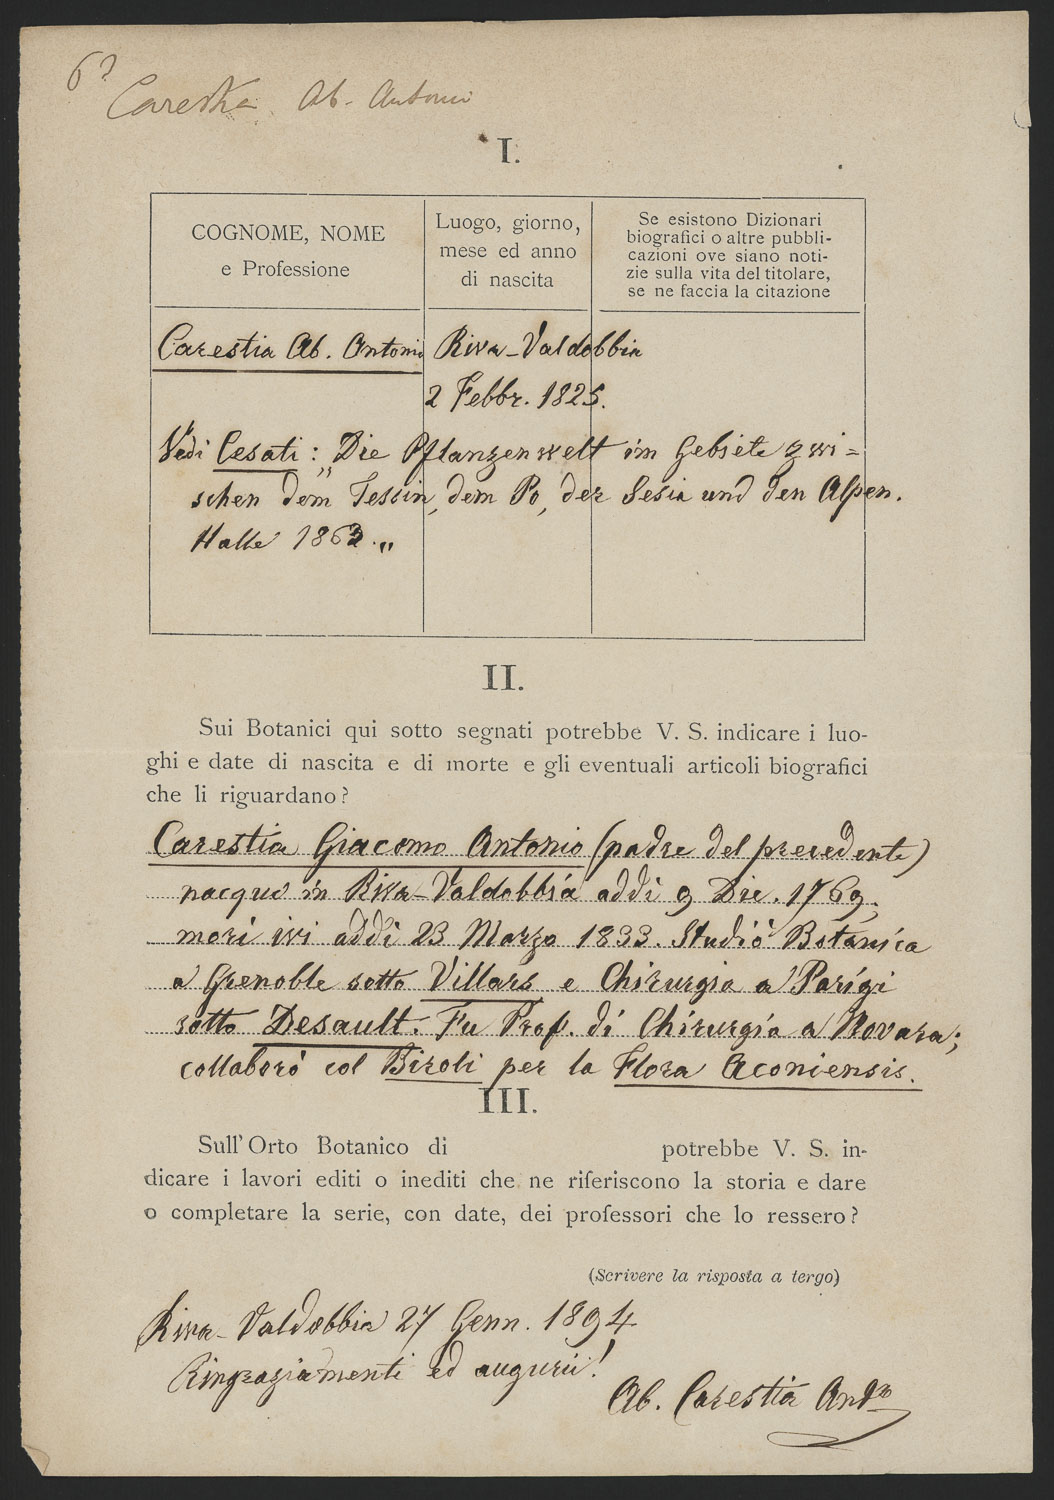 6?
Carestia Ab. Antonio
I.
COGNOME, NOME
e Professione
Luogo, giorno,
mese ed anno
di nascita
Se esistono Dizionari
biografici o altre pubbli-
cazioni ove siano noti-
zie sulla vita del titolare,
se ne faccia la citazione
Carestia Ab. Antonio
Riva-Valdobbia
2 Febbr. 1825.
Vedi Cesati: „Die Pflanzenwelt im Gebiete zwi=
schen dem Tessin, dem Po, der Sesia und den Alpen.
Halle 1863.„
II.
Sui Botanici qui sotto segnati potrebbe V. S. indicare i luo-
ghi e date di nascita e di morte e gli eventuali articoli biografici
che li riguardano?
Carestia Giacomo Antonio (padre del precedente)
nacque in Riva-Valdobbia addi 9 Dic. 1769,
morì ivi addi 23 Marzo 1833. Studiò Botanica
a Grenoble sotto Villars e Chirurgia a Parigi
sotto Desault. Fu Prof. di Chirurgia a Novara;
collaborò col Biroli per la Flora Aconiensis.
III.
Sull' Orto Botanico di potrebbe V. S. in-
dicare i lavori editi o inediti che ne riferiscono la storia e dare
o completare la serie, con date, dei professori che lo ressero?
(Scrivere la risposta a tergo)
Riva-Valdobbia 27 Genn. 1894
Ringraziamenti ed augurii!
Ab. Carestia Ant.o